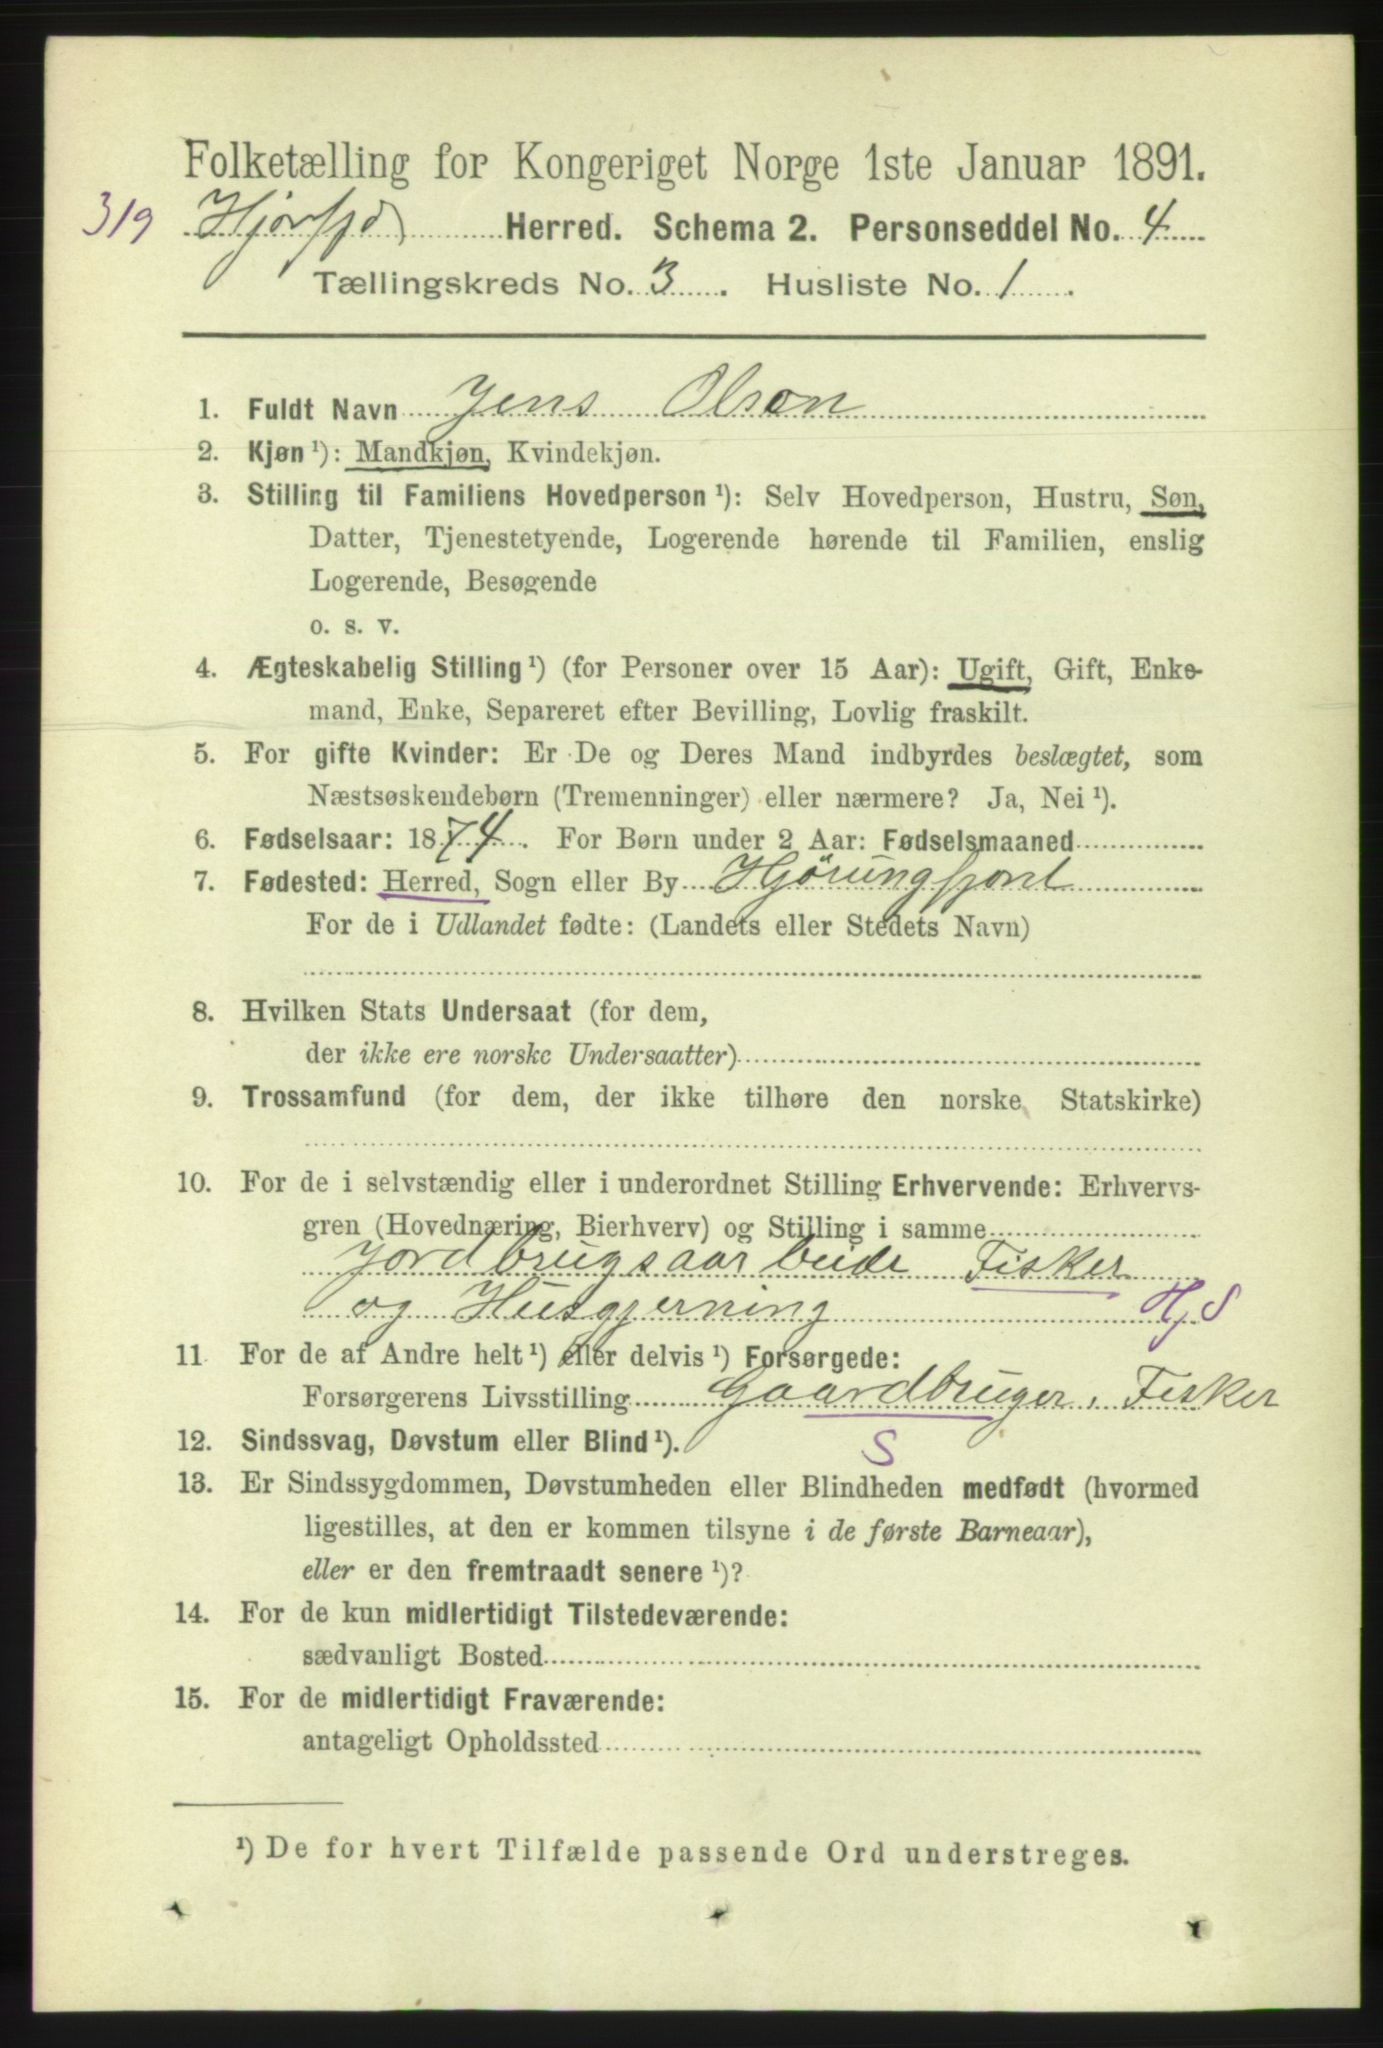 Folketælling for Kongeriget Norge 1ste Januar 1891.
319 Hjørfjd Herred. Schema 2. Personseddel No. 4
Tællingskreds No. 3. Husliste No. 1.
1. Fuldt Navn Jens Olsen
2. Kjøn ¹): Mandkjøn, Kvindekjøn.
3. Stilling til Familiens Hovedperson ¹): Selv Hovedperson, Hustru, Søn,
Datter, Tjenestetyende, Logerende hørende til Familien, enslig
Logerende, Besøgende
o. s. v.
4. Ægteskabelig Stilling ¹) (for Personer over 15 Aar): Ugift, Gift, Enke-
mand, Enke, Separeret efter Bevilling, Lovlig fraskilt.
5. For gifte Kvinder: Er De og Deres Mand indbyrdes beslægtet, som
Næstsøskendebørn (Tremenninger) eller nærmere? Ja, Nei ¹).
6. Fødselsaar: 1874. For Børn under 2 Aar: Fødselsmaaned
7. Fødested: Herred, Sogn eller By Hjörungfjord
For de i Udlandet fødte: (Landets eller Stedets Navn)
8. Hvilken Stats Undersaat (for dem,
der ikke ere norske Undersaatter)
9. Trossamfund (for dem, der ikke tilhøre den norske Statskirke)
10. For de i selvstændig eller i underordnet Stilling Erhvervende: Erhvervs-
gren (Hovednæring, Bierhverv) og Stilling i samme
Jordbrugsaarbeide Fisker
og Husgjerning HjS
11 For de af Andre helt ¹) eller delvis ¹) Forsørgede:
Forsørgerens Livsstilling Gaardbruger, Fisker
12. Sindssvag, Døvstum eller Blind ¹). S
13. Er Sindssygdommen, Døvstumheden eller Blindheden medfødt (hvormed
ligestilles, at den er kommen tilsyne i de første Barneaar),
eller er den fremtraadt senere ¹)?
14. For de kun midlertidigt Tilstedeværende:
sædvanligt Bosted
15. For de midlertidigt Fraværende:
antageligt Opholdssted
¹) De for hvert Tilfælde passende Ord understreges.